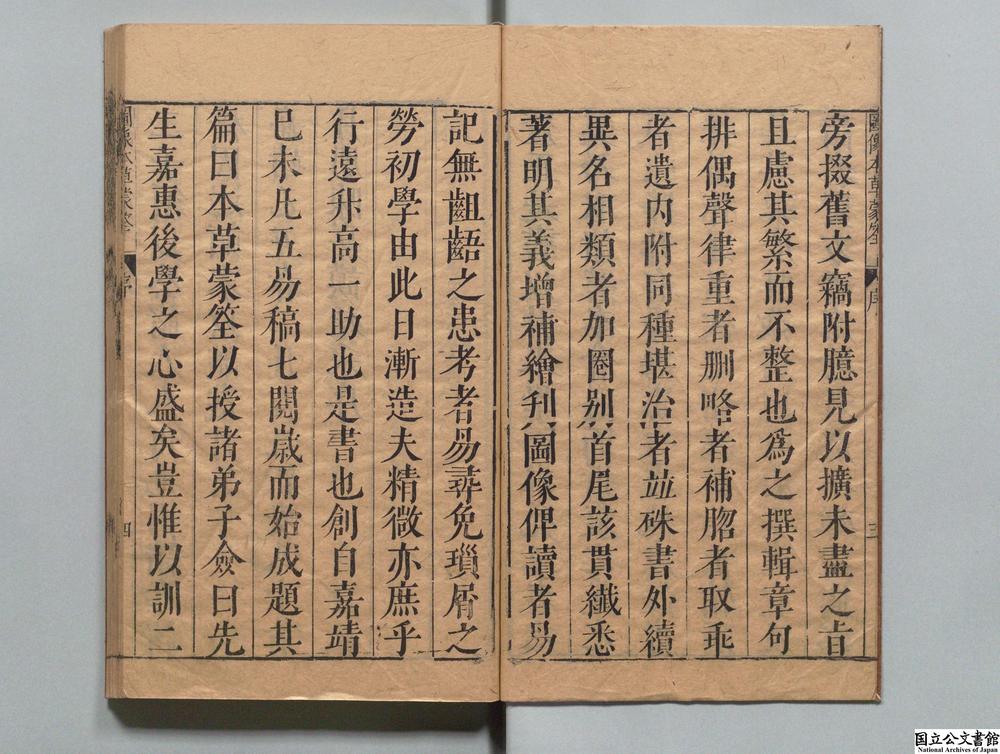 圖像本草蒙筌 序 三
旁掇舊文竊附臆見以擴未盡之旨
且慮其繁而不整也爲之撰輯章句
排偶聲律重者删略者補脗者取乖
者遺内附同種堪治者並硃書外續
異名相類者加圈别首尾該貫纖悉
著明其義增補繪刋圖像俾讀者易
記無齟齬之患考者易尋免瑣屑之
勞初學由此日漸造夫精微亦庶乎
行遠升高一助也是書也創自嘉靖
己未凡五易稿七閱歲而始成題其
篇曰本草蒙筌以授諸弟子僉曰先
生嘉惠後學之心盛矣豈惟以訓二
圖像本草蒙筌 序 四
国立公文書館
National Archives of Japan